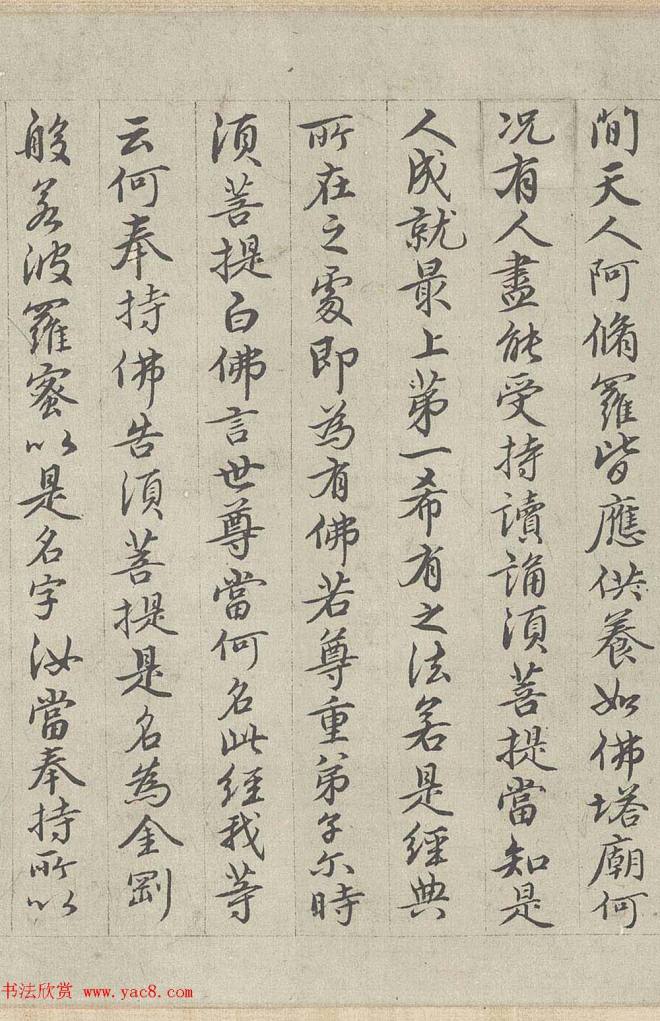 間天人阿脩羅皆應供養如佛塔廟何
況有人盡能受持讀誦須菩提當知是
人成就最上第一希有之法若是經典
所在之處即為有佛若尊重弟子尒時
須菩提白佛言世尊當何名此經我等
云何奉持佛告須菩提是名為金剛
般若波羅蜜以是名字汝當奉持所以
书法欣赏 www.yac8.com